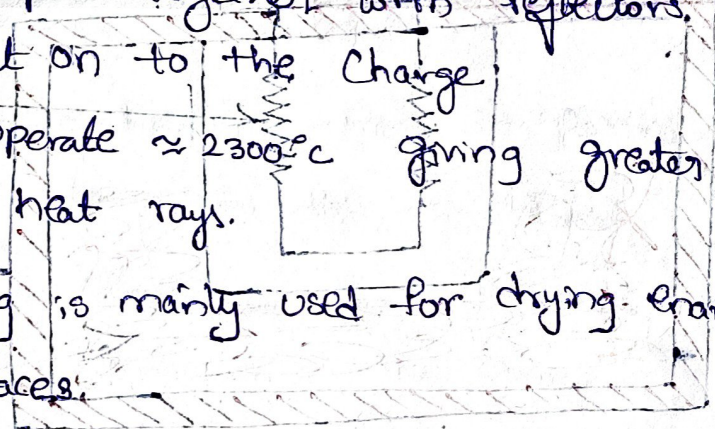 with reflectors.
t on to the Charge.
operate ≈ 2300°C giving greater
heat rays.
g is mainly used for drying ena
aces.